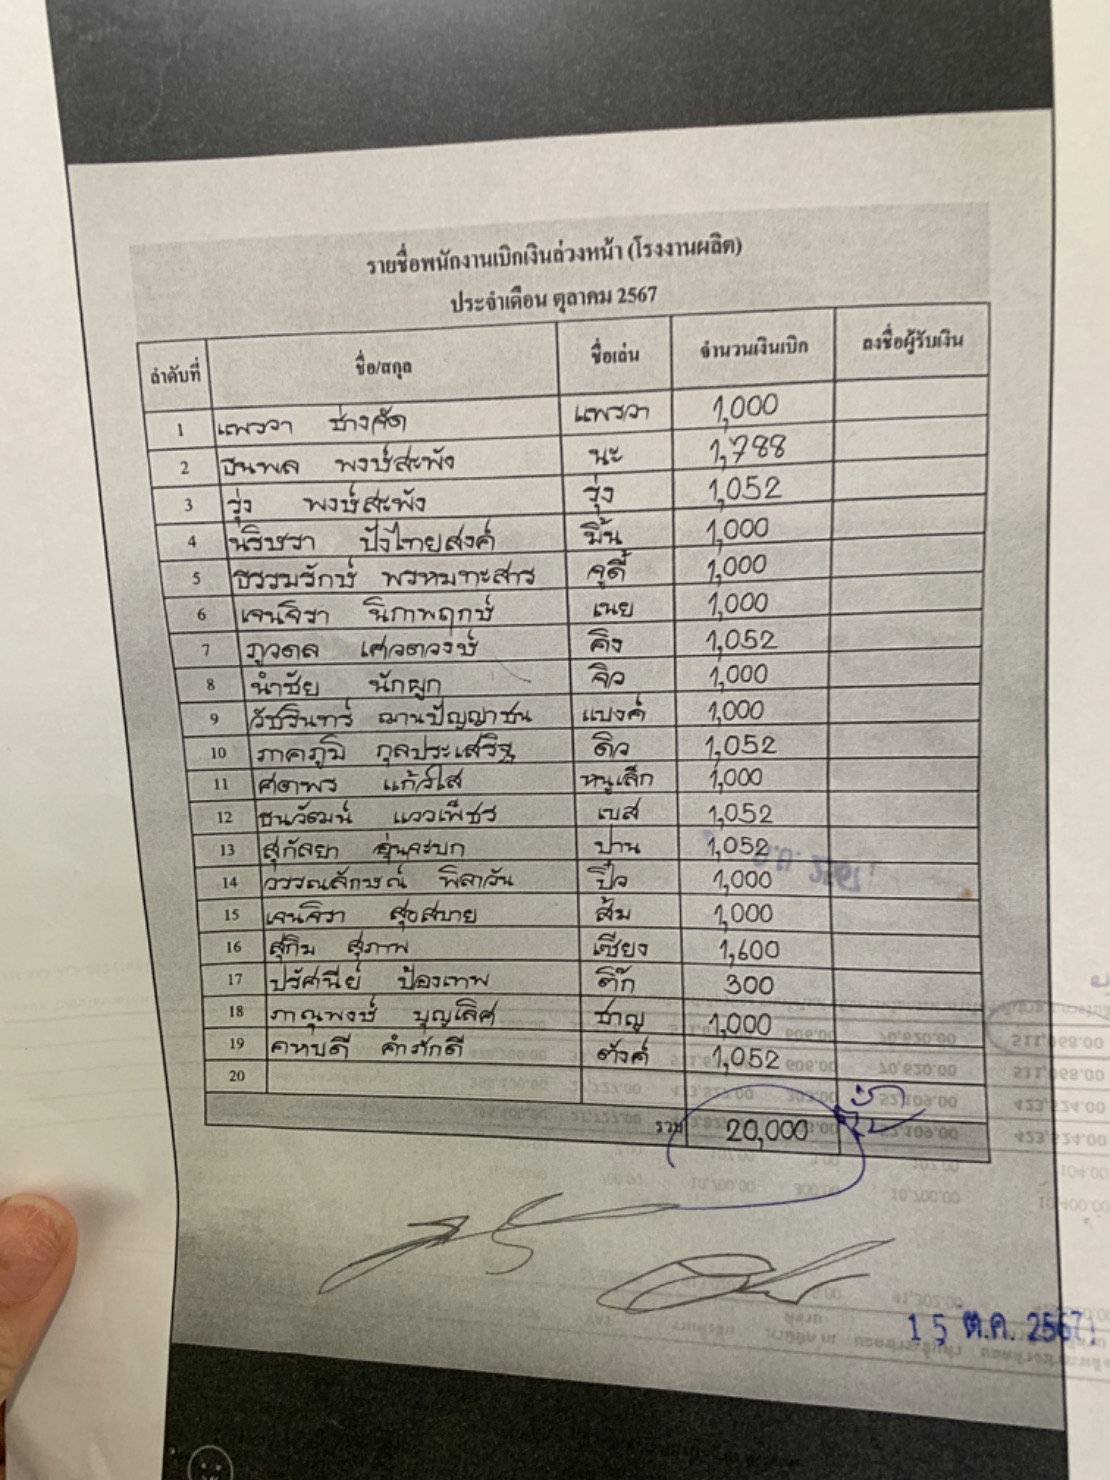 รายชื่อพนักงานเบิกเงินล่วงหน้า (โรงงานผลิต)
ประจำเดือน ตุลาคม 2567
ลำดับที่ ชื่อ/สกุล ชื่อเล่น จำนวนเงินเบิก ลงชื่อผู้รับเงิน
1 แพรวา ช่างจัด แพรวา 1,000
2 ธนพล พงษ์สะพัง นะ 1,788
3 รุ่ง พงษ์สะพัง รุ่ง 1,052
4 นริศรา ปังไทยสงค์ มิ้น 1,000
5 ธรรมรักษ์ พรหมทะสาร จูดี้ 1,000
6 เจนจิรา นิภาพฤกษ์ เนย 1,000
7 ภูวดล เศวตวงษ์ คิง 1,052
8 นำชัย นักผูก จิว 1,000
9 วัชรินทร์ ฌานปัญญาชน แบงค์ 1,000
10 ภาคภูมิ กุลประเสริฐ ดิว 1,052
11 ศตพร แก้วใส หนูเล็ก 1,000
12 ธนวัฒน์ แววเพ็ชร เบส 1,052
13 สุกัลยา อุ่นละบก ปาน 1,052
14 วรรณลักษณ์ พิลาวัน ปิ๋ว 1,000
15 เจนจิรา สุขสบาย ส้ม 1,000
16 สุกิม สุภาพ เซียง 1,600
17 ปรัศนีย์ ป้องเทพ ติ๊ก 300
18 ภาณุพงษ์ บุญเลิศ ชาญ 1,000
19 คหบดี คำภักดี ตังค์ 1,052
20
รวม 20,000
15 ต.ค. 2567